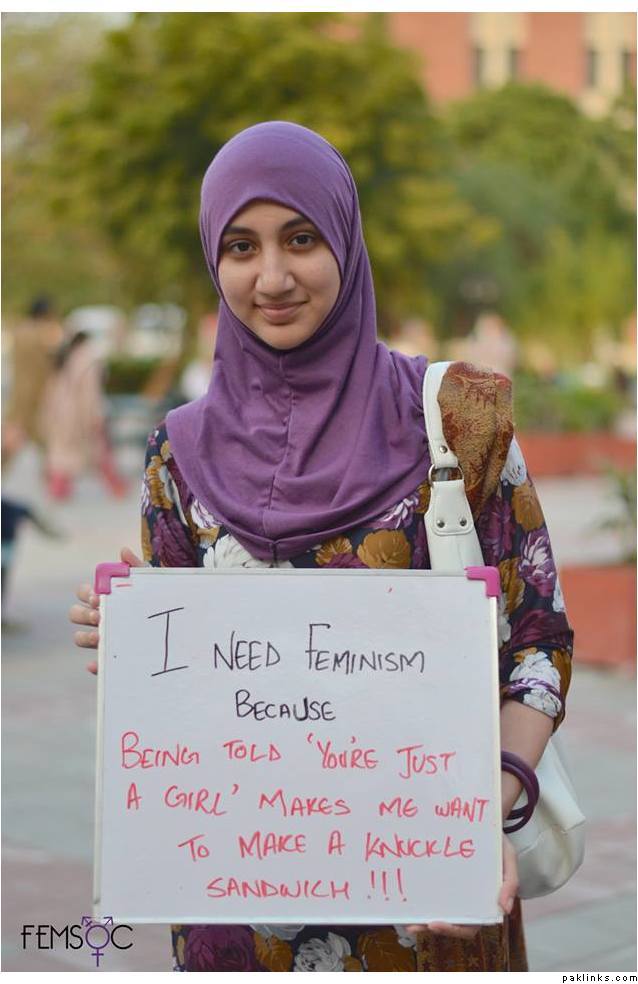 I NEED FEMINISM
BECAUSE
BEING TOLD 'YOU'RE JUST
A GIRL' MAKES ME WANT
TO MAKE A KNUCKLE
SANDWICH !!!
FEMSOC
paklinks.com